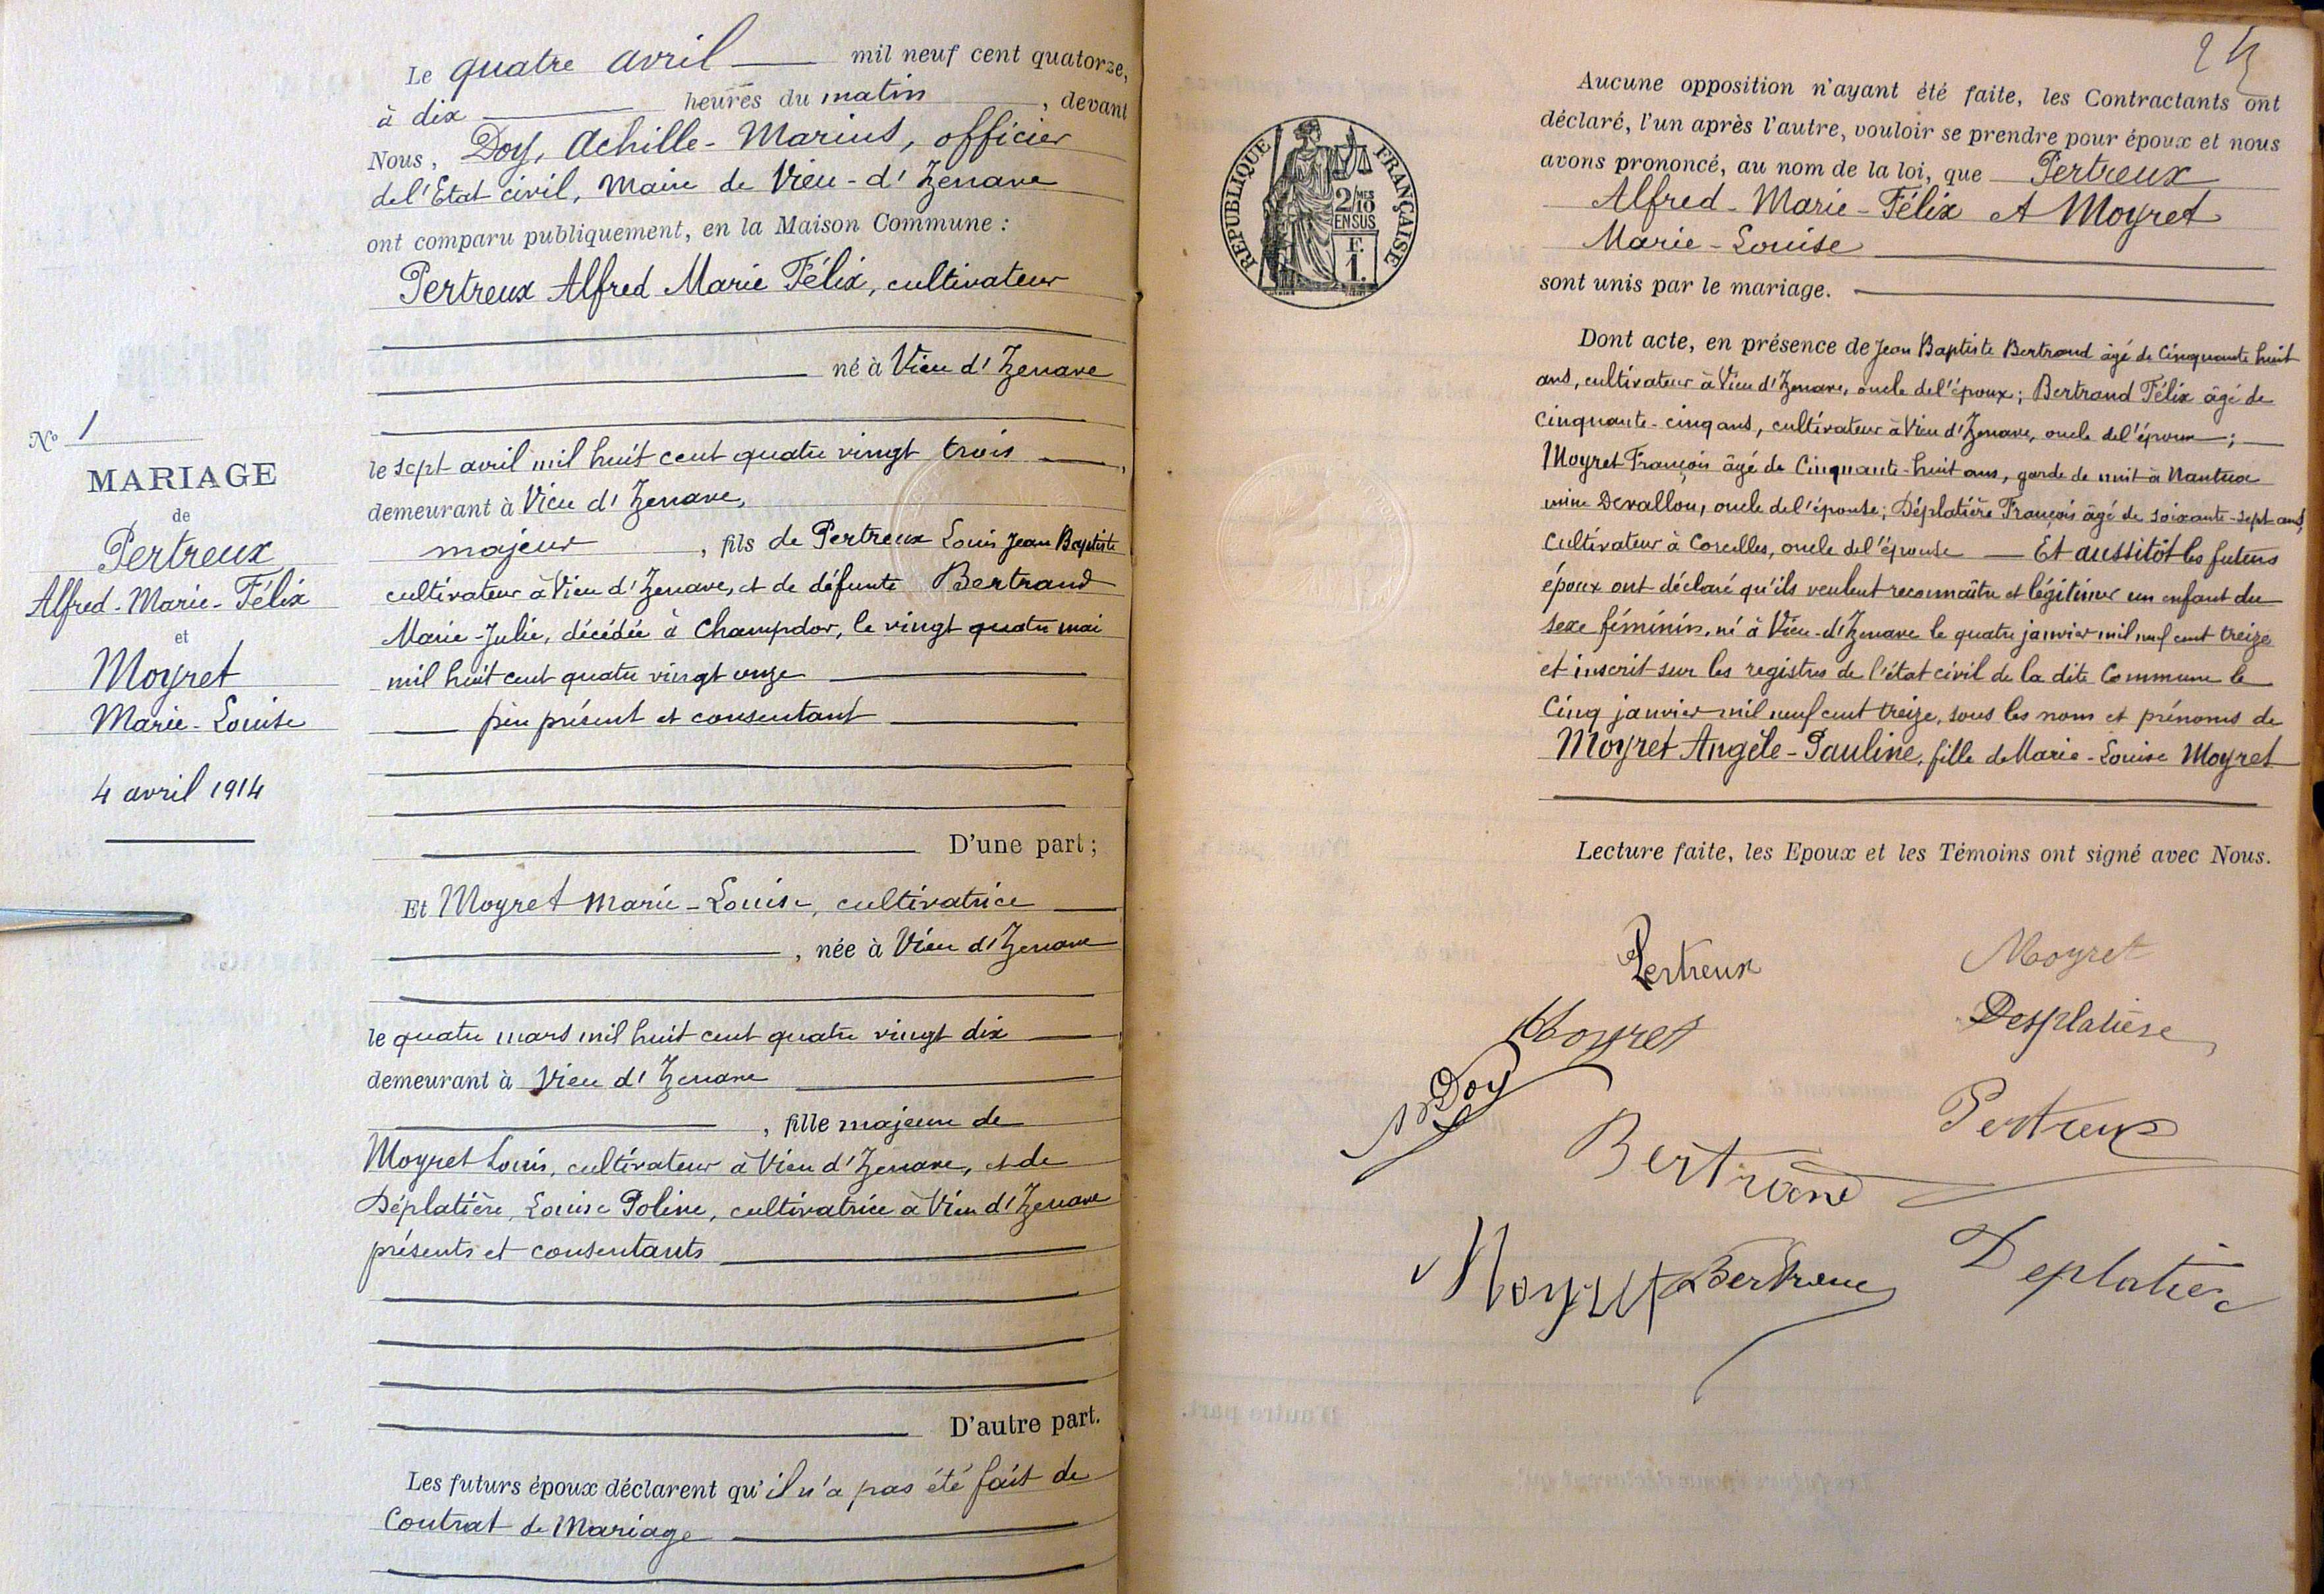 N° 1
MARIAGE
de
Pertreux
Alfred-Marie-Félix
et
Moyret
Marie-Louise
4 avril 1914
Le quatre avril mil neuf cent quatorze,
à dix heures du matin, devant
Nous, Doy, Achille-Marius, officier
de l'Etat civil, Maire de Vieu-d'Izenave
ont comparu publiquement, en la Maison Commune :
Pertreux Alfred Marie Félix, cultivateur
né à Vieu d'Izenave
le sept avril mil huit cent quatre vingt trois,
demeurant à Vieu d'Izenave,
majeur, fils de Pertreux Louis Jean Baptiste
cultivateur à Vieu d'Izenave, et de défunte Bertrand
Marie-Julie, décédée à Champdor, le vingt quatre mai
mil huit cent quatre vingt onze
père présent et consentant
D'une part ;
Et Moyret Marie-Louise, cultivatrice
, née à Vieu d'Izenave
le quatre mars mil huit cent quatre vingt dix
demeurant à Vieu d'Izenave
, fille majeure de
Moyret Louis, cultivateur à Vieu d'Izenave, et de
Déplatière, Louise Poline, cultivatrice à Vieu d'Izenave
présents et consentants
D'autre part.
Les futurs époux déclarent qu'il n'a pas été fait de
Contrat de Mariage
RÉPUBLIQUE FRANÇAISE
2/10MES
EN SUS
F.
1.
Aucune opposition n'ayant été faite, les Contractants ont
déclaré, l'un après l'autre, vouloir se prendre pour époux et nous
avons prononcé, au nom de la loi, que Pertreux
Alfred-Marie-Félix et Moyret
Marie-Louise
sont unis par le mariage.
Dont acte, en présence de Jean Baptiste Bertrand âgé de Cinquante huit
ans, cultivateur à Vieu d'Izenave, oncle de l'époux ; Bertrand Félix âgé de
Cinquante-cinq ans, cultivateur à Vieu d'Izenave, oncle de l'époux ;
Moyret François âgé de Cinquante-huit ans, garde de nuit à Nantua
usine Devallon, oncle de l'épouse ; Déplatière François âgé de soixante-sept ans,
Cultivateur à Corcelles, oncle de l'épouse — Et aussitôt les futurs
époux ont déclaré qu'ils veulent reconnaître et légitimer un enfant du
sexe féminin, né à Vieu-d'Izenave le quatre janvier mil neuf cent treize
et inscrit sur les registres de l'état civil de la dite Commune le
Cinq janvier mil neuf cent treize, sous les nom et prénoms de
Moyret Angèle-Pauline, fille de Marie-Louise Moyret
Lecture faite, les Epoux et les Témoins ont signé avec Nous.
Pertreux Moyret
Moyret Desplatière
Doy
Bertrand Pertreux
Moyret Bertrand Deplatière